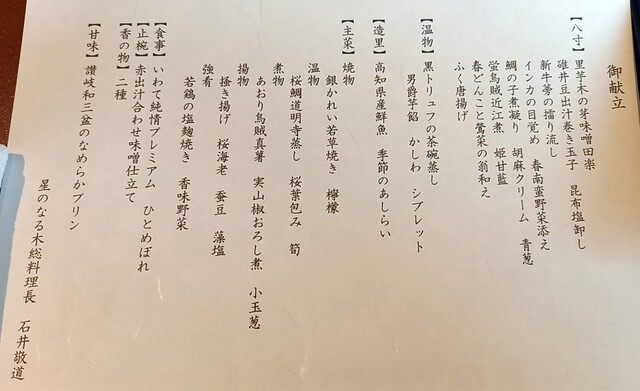 御献立
【八寸】里芋木の芽味噌田楽　昆布塩卸し
碓井豆出汁巻き玉子
新牛蒡の擂り流し
インカの目覚め　春南蛮野菜添え
鯛の子煮凝り　胡麻クリーム　青葱
蛍烏賊近江煮　姫甘藍
春どんこと鶯菜の翁和え
ふく唐揚げ
【温物】黒トリュフの茶碗蒸し
男爵芋餡　かしわ　シブレット
【造里】高知県産鮮魚　季節のあしらい
【主菜】焼物
銀かれい若草焼き　檸檬
温物
桜鯛道明寺蒸し　桜葉包み　筍
煮物
あおり烏賊真薯　実山椒おろし煮　小玉葱
揚物
掻き揚げ　桜海老　蚕豆　藻塩
強肴
若鶏の塩麹焼き　香味野菜
【食事】いわて純情プレミアム　ひとめぼれ
【止椀】赤出汁合わせ味噌仕立て
【香の物】二種
【甘味】讃岐和三盆のなめらかプリン
星のなる木総料理長　石井敬道